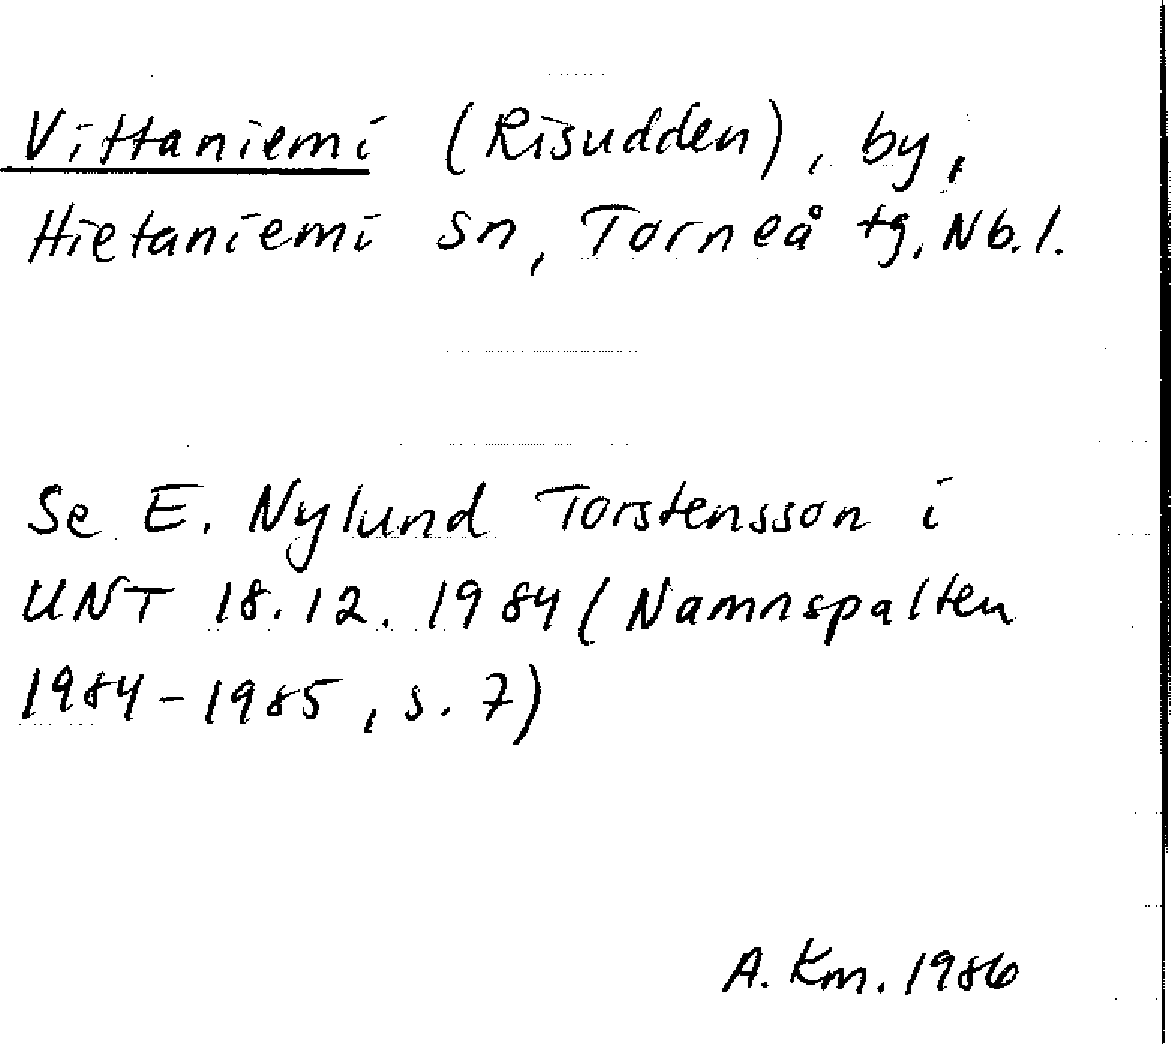 Vittaniemi (Risudden), by,
Hietaniemi sn, Torneå tg, Nb. l.
Se E. Nylund Torstensson i
UNT 18.12. 1984 (Namnspalten
1984-1985, s. 7)
A. Km. 1986